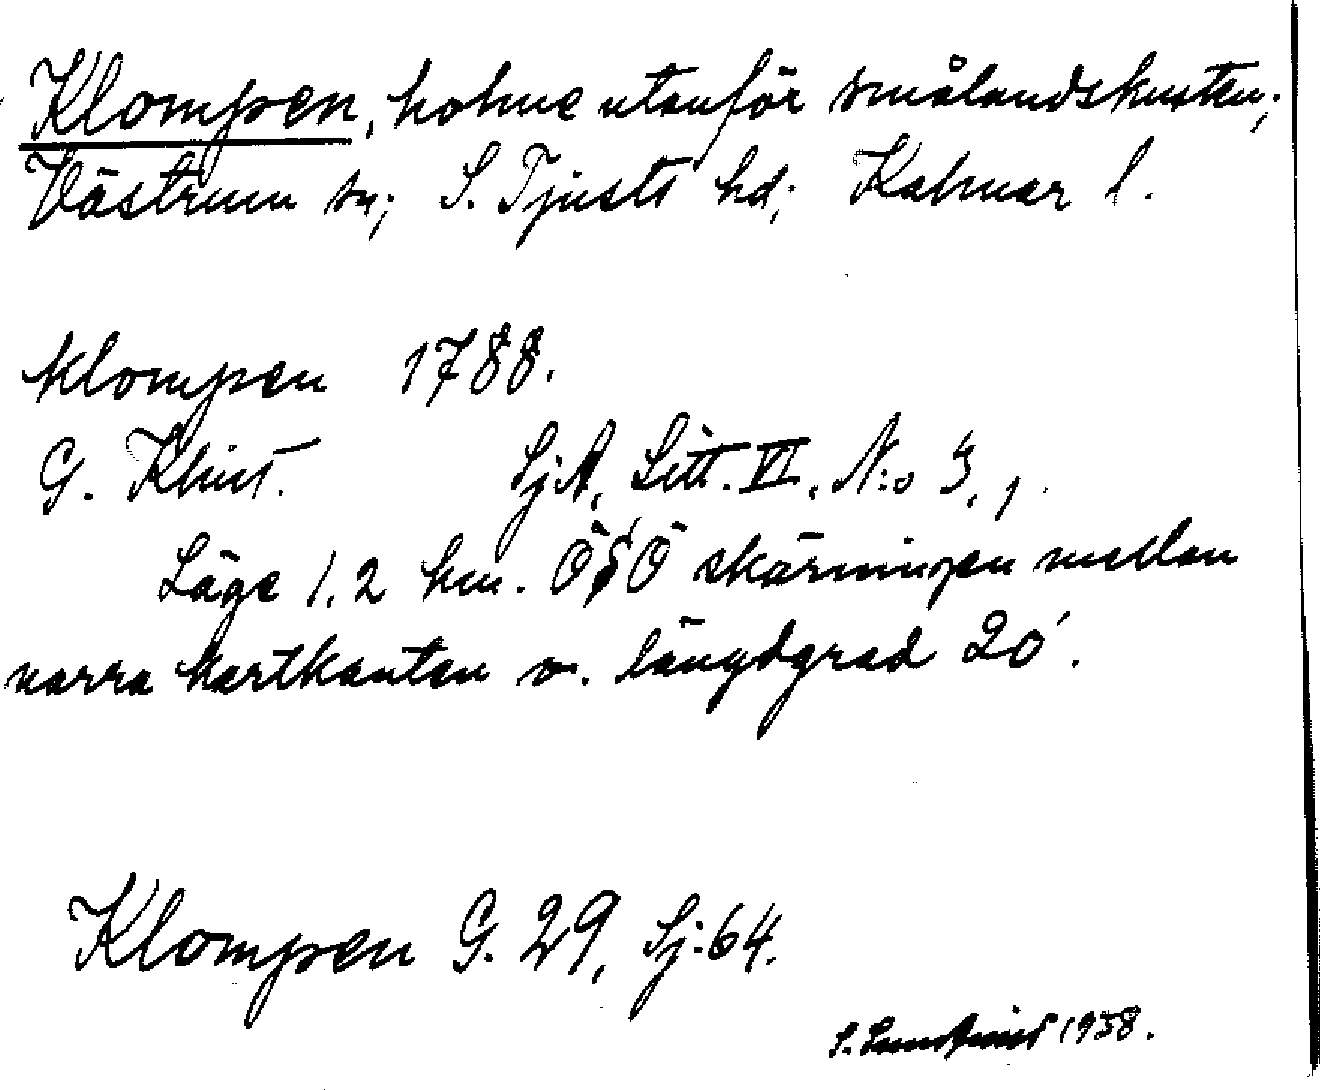 Klompen, holme utanför smålandskusten;
Västrum sn; S. Tjusts hd; Kalmar l.
Klompen 1788.
G. Klint. SjA, Litt. VI, N:o 3, 1.
Läge 1,2 km. OSO skärningen mellan
norra kartkanten o. längdgrad 20'.
Klompen G. 29, Sj:64.
S. 1938.